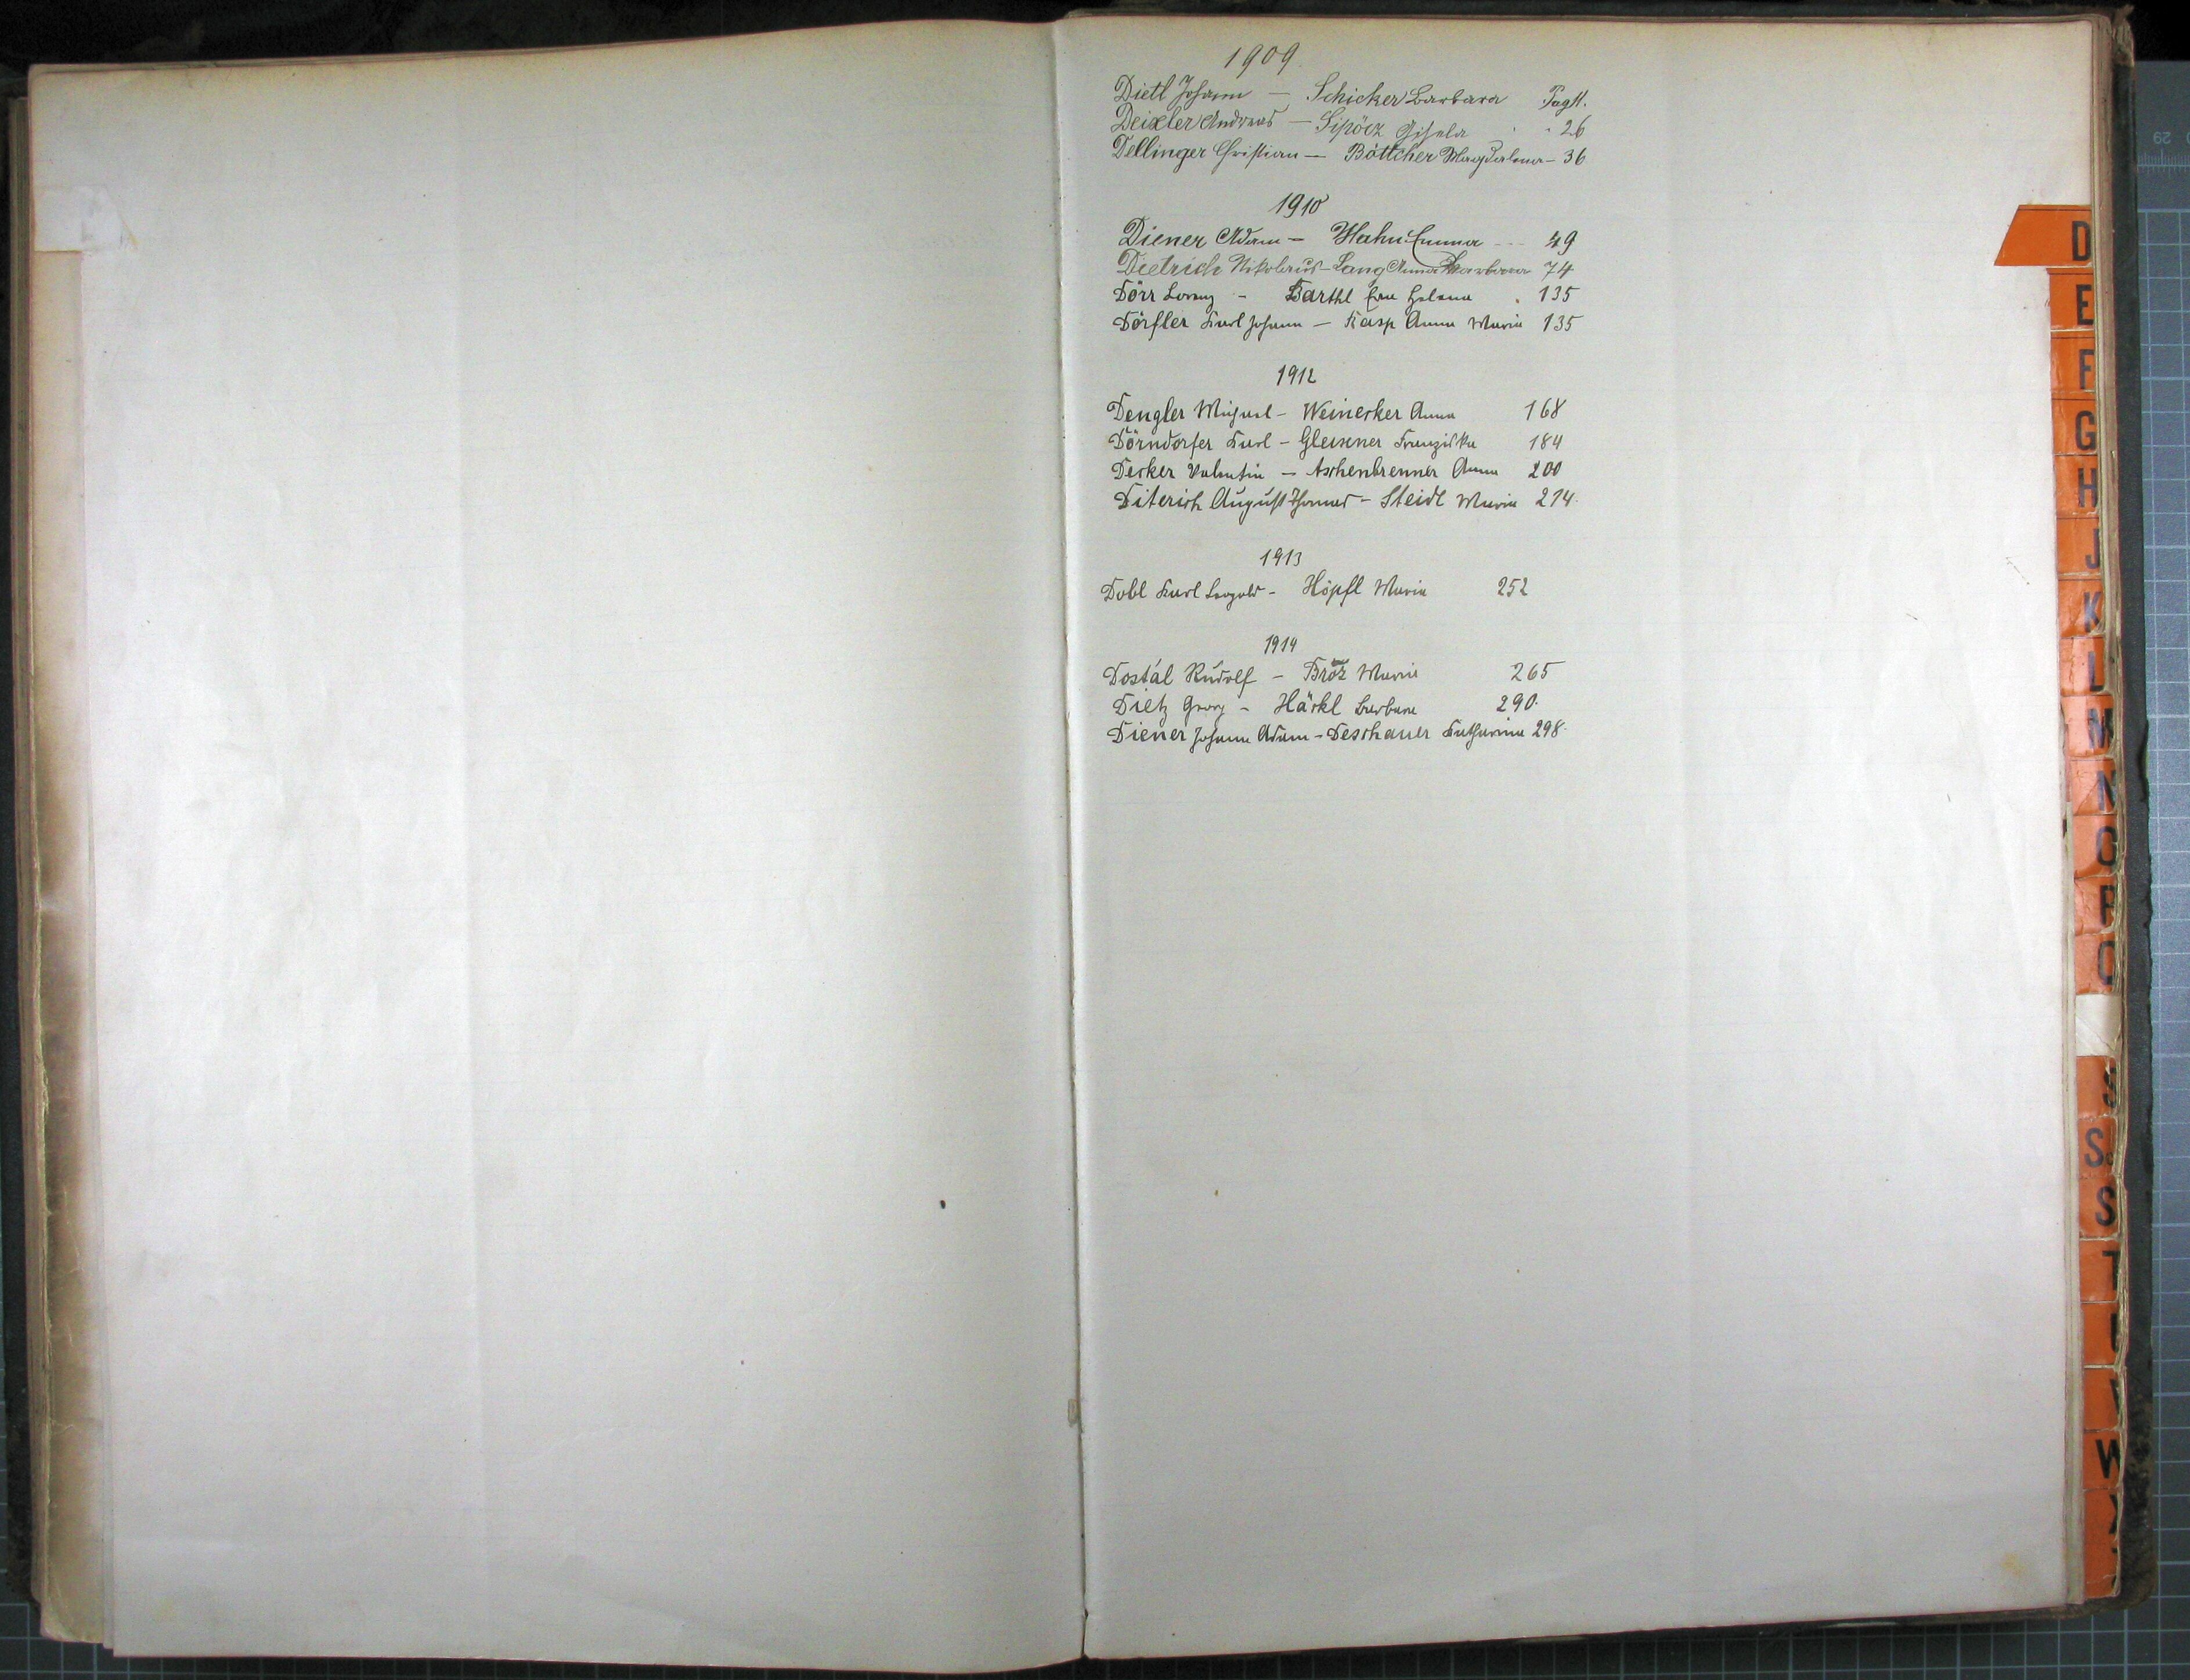 1909.
Dietl Johann — Schicker Barbara Pag 11.
Deixler Andreas — Sipöcz Gisela " 26
Dellinger Christian — Böttcher Magdalena — 36
1910
Diener Adam — Hahn Emma --- 49
Dietrich Nikolaus — Lang Anna Barbara 74
Dörr Lorenz - Barthl Eva Helena . 135
Dörfler Karl Johann — Kasp Anna Maria 135
1912
Dengler Michael - Weinecker Anna 168
Dörndorfer Karl - Gleixner Franziska 184
Decker Valentin — Aschenbrenner Anna 200
Diterich August Thomas - Steidl Maria 214.
1913
Dobl Karl Leopold - Höpfl Maria 252
1914
Dostál Rudolf - Brož Maria 265
Dietz Georg - Häckl Barbara 290.
Diener Johann Adam - Deschauer Katharina 298.
D
E
F
G
H
J
K
L
M
N
O
P
Q
S
S
S
T
U
V
W
X
29